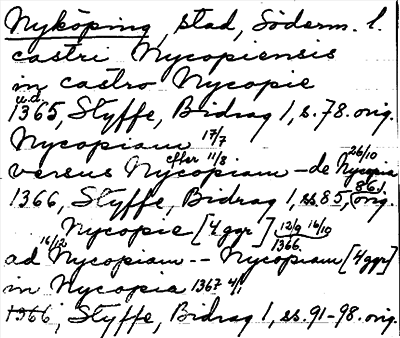 Nyköping, stad, Söderm. l.
castri Nycopiensis
in castro Nycopie
u.d.
1365, Styffe, Bidrag 1, s. 78. orig.
Nycopiam 17/7
versus Nycopiam efter 11/8 - de Nycopia 26/10
1366, Styffe, Bidrag 1, ss. 85, 86). orig.
Nycopie [4 ggr] 12/9 16/10 1366.
ad Nycopiam 16/12 -- Nycopiam [4 ggr]
in Nycopia 1367 4/1
1366, Styffe, Bidrag 1, ss. 91-98. orig.